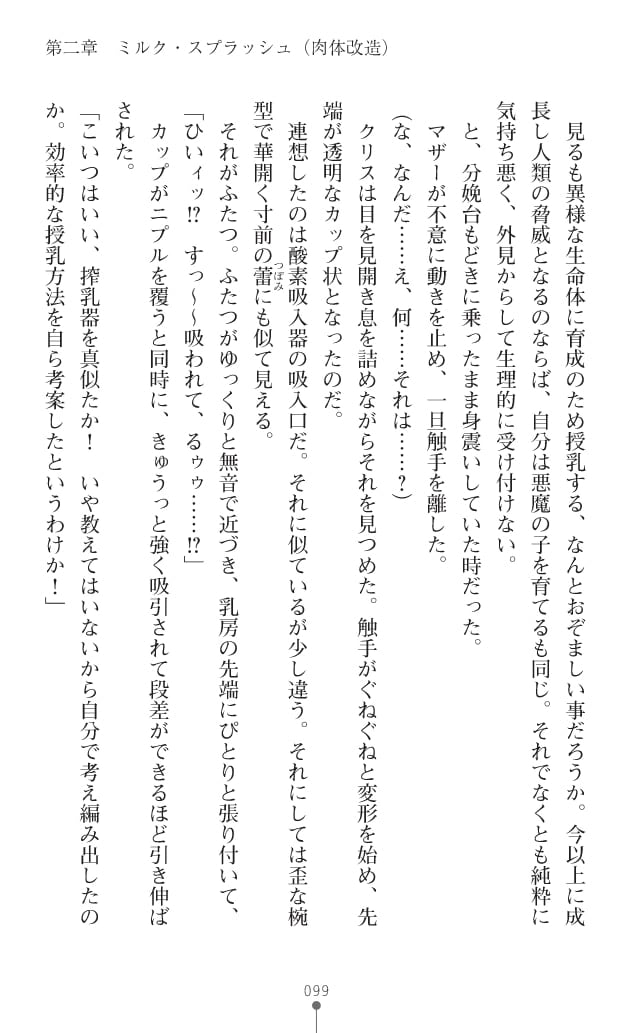 第二章　ミルク・スプラッシュ（肉体改造）
　見るも異様な生命体に育成のため授乳する、なんとおぞましい事だろうか。今以上に成
長し人類の脅威となるのならば、自分は悪魔の子を育てるも同じ。それでなくとも純粋に
気持ち悪く、外見からして生理的に受け付けない。
　と、分娩台もどきに乗ったまま身震いしていた時だった。
　マザーが不意に動きを止め、一旦触手を離した。
（な、なんだ……え、何……それは……？）
　クリスは目を見開き息を詰めながらそれを見つめた。触手がぐねぐねと変形を始め、先
端が透明なカップ状となったのだ。
　連想したのは酸素吸入器の吸入口だ。それに似ているが少し違う。それにしては歪な椀
型で華開く寸前の蕾つぼみにも似て見える。
　それがふたつ。ふたつがゆっくりと無音で近づき、乳房の先端にぴとりと張り付いて、
「ひいィッ!?　すっ〜〜吸われて、るゥゥ……!?」
　カップがニプルを覆うと同時に、きゅうっと強く吸引されて段差ができるほど引き伸ば
された。
「こいつはいい、搾乳器を真似たか！　いや教えてはいないから自分で考え編み出したの
か。効率的な授乳方法を自ら考案したというわけか！」
099